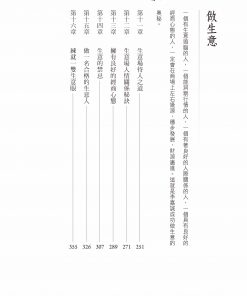 做生意
一個有生意頭腦的人，一個能洞察行情的人，一個有著良好的人際關係的人，一個具有良好的
經商心態的人，一定會在商場上左右逢源，穩步發展，財源廣進，這就是李嘉誠成功做生意的
奧秘。
第十一章 生意場待人之道 251
第十二章 生意場人情關係秘訣 271
第十三章 擁有良好的經商心態 289
第十四章 生意的禁忌 307
第十五章 做一名合格的生意人 326
第十六章 練就一雙生意眼 355